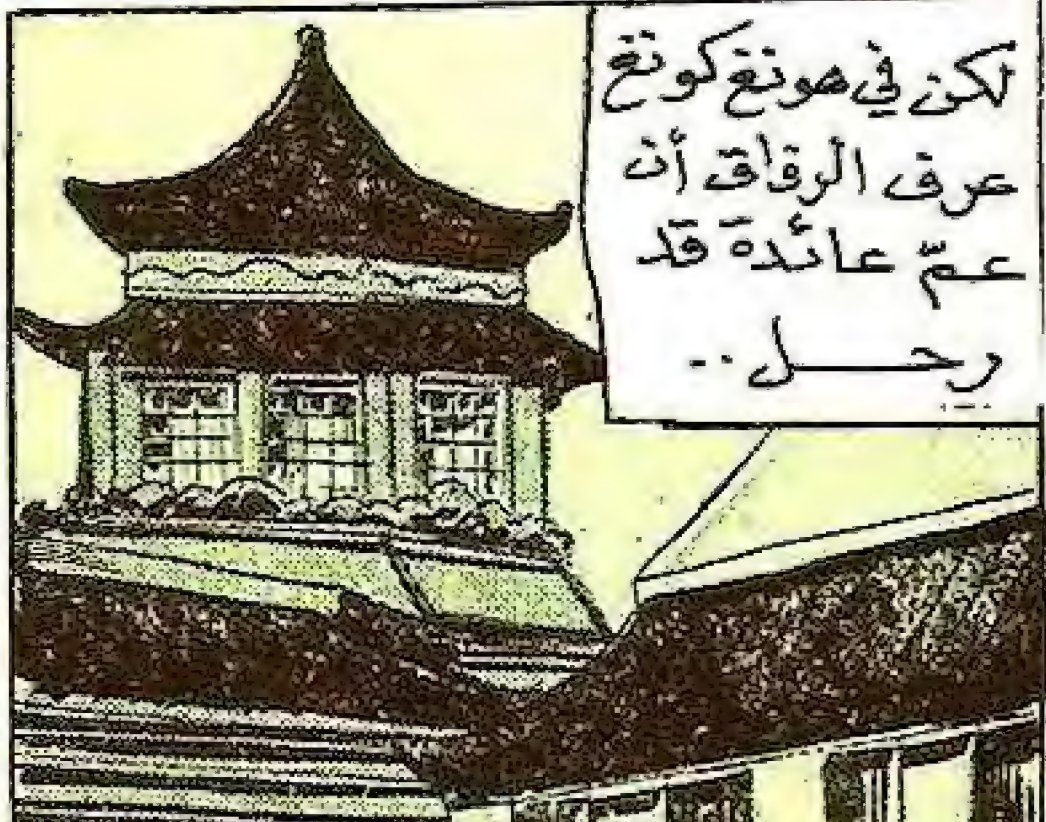 لكن في هونغ كونغ
عرف الرفاق أن
عمّ عائدة قد
رحـــل..